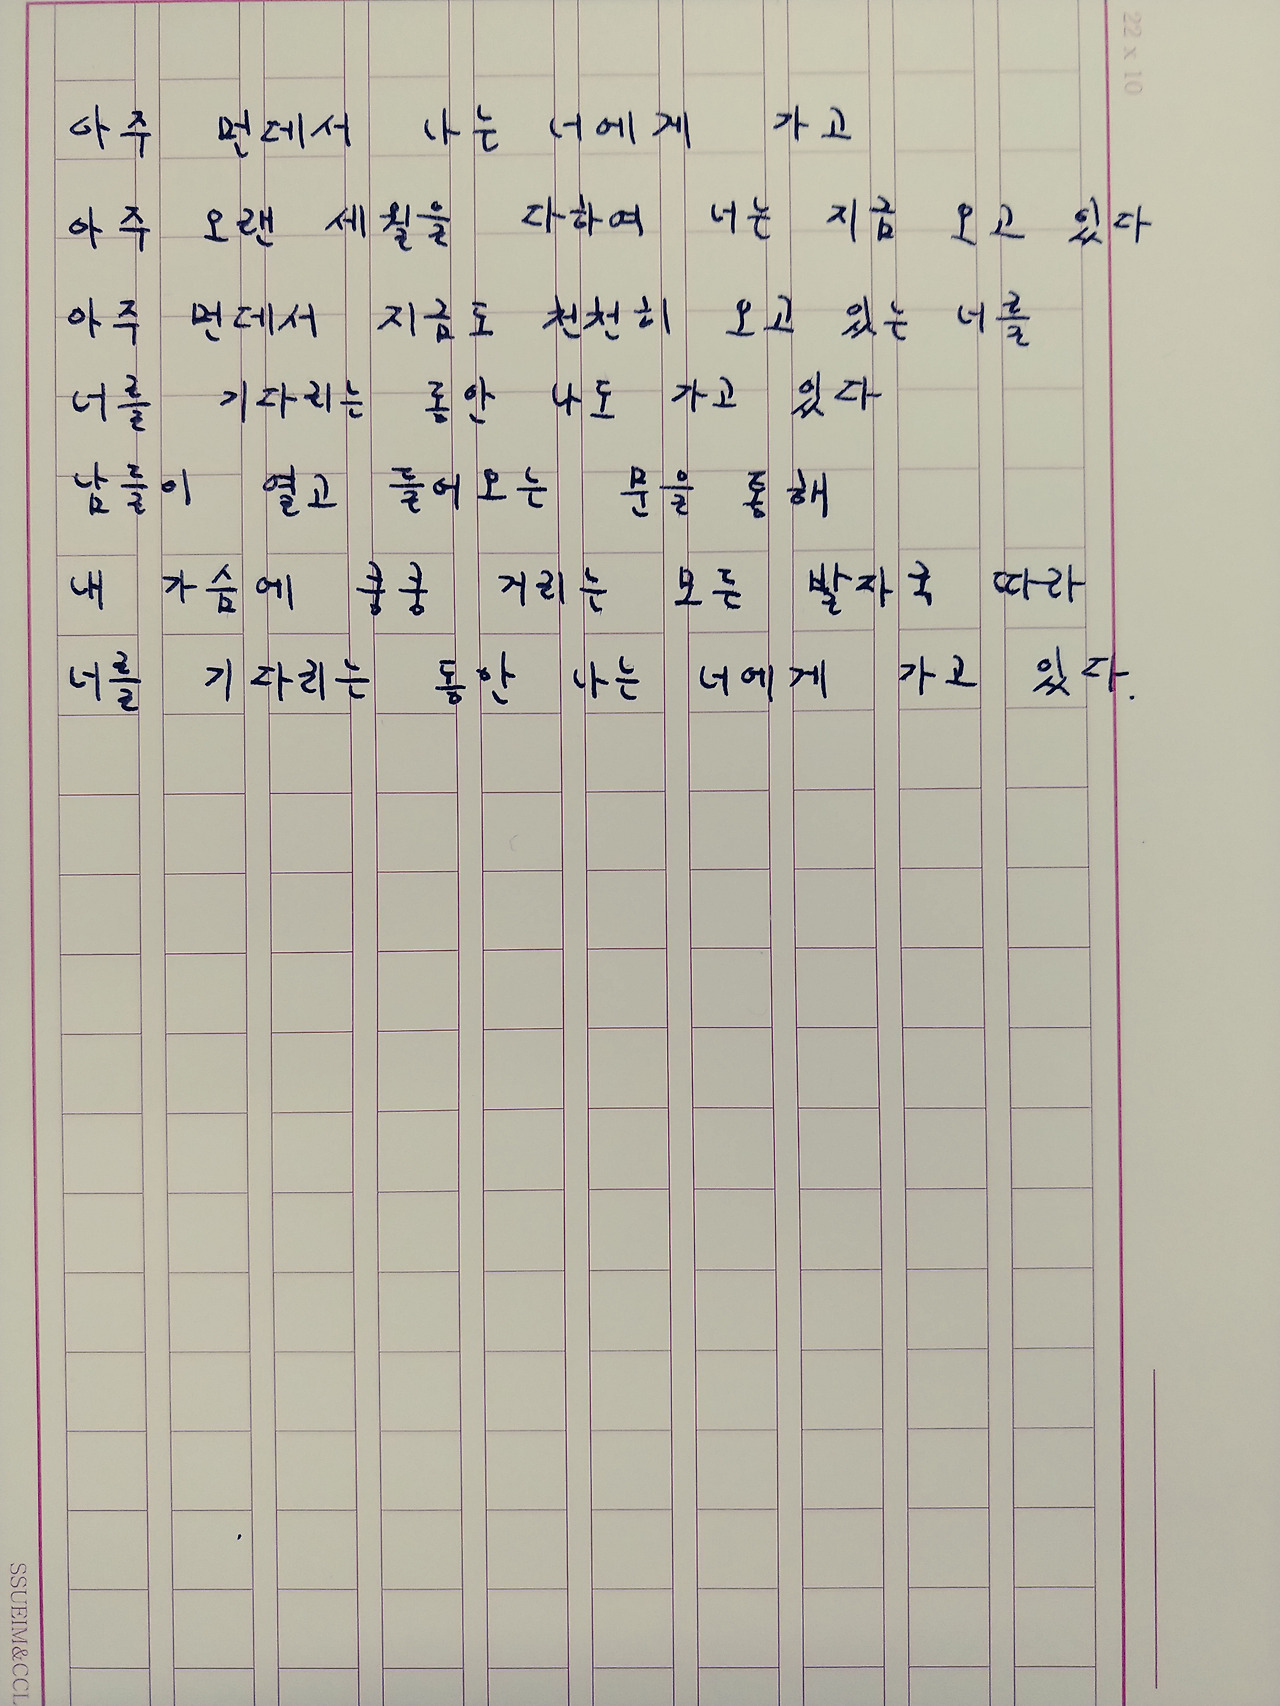 22 x 10
아주 먼데서 나는 너에게 가고
아주 오랜 세월을 다하여 너는 지금 오고 있다
아주 먼데서 지금도 천천히 오고 있는 너를
너를 기다리는 동안 나도 가고 있다
남들이 열고 들어오는 문을 통해
내 가슴에 쿵쿵 거리는 모든 발자국 따라
너를 기다리는 동안 나는 너에게 가고 있다.
SSUEIM&CCL